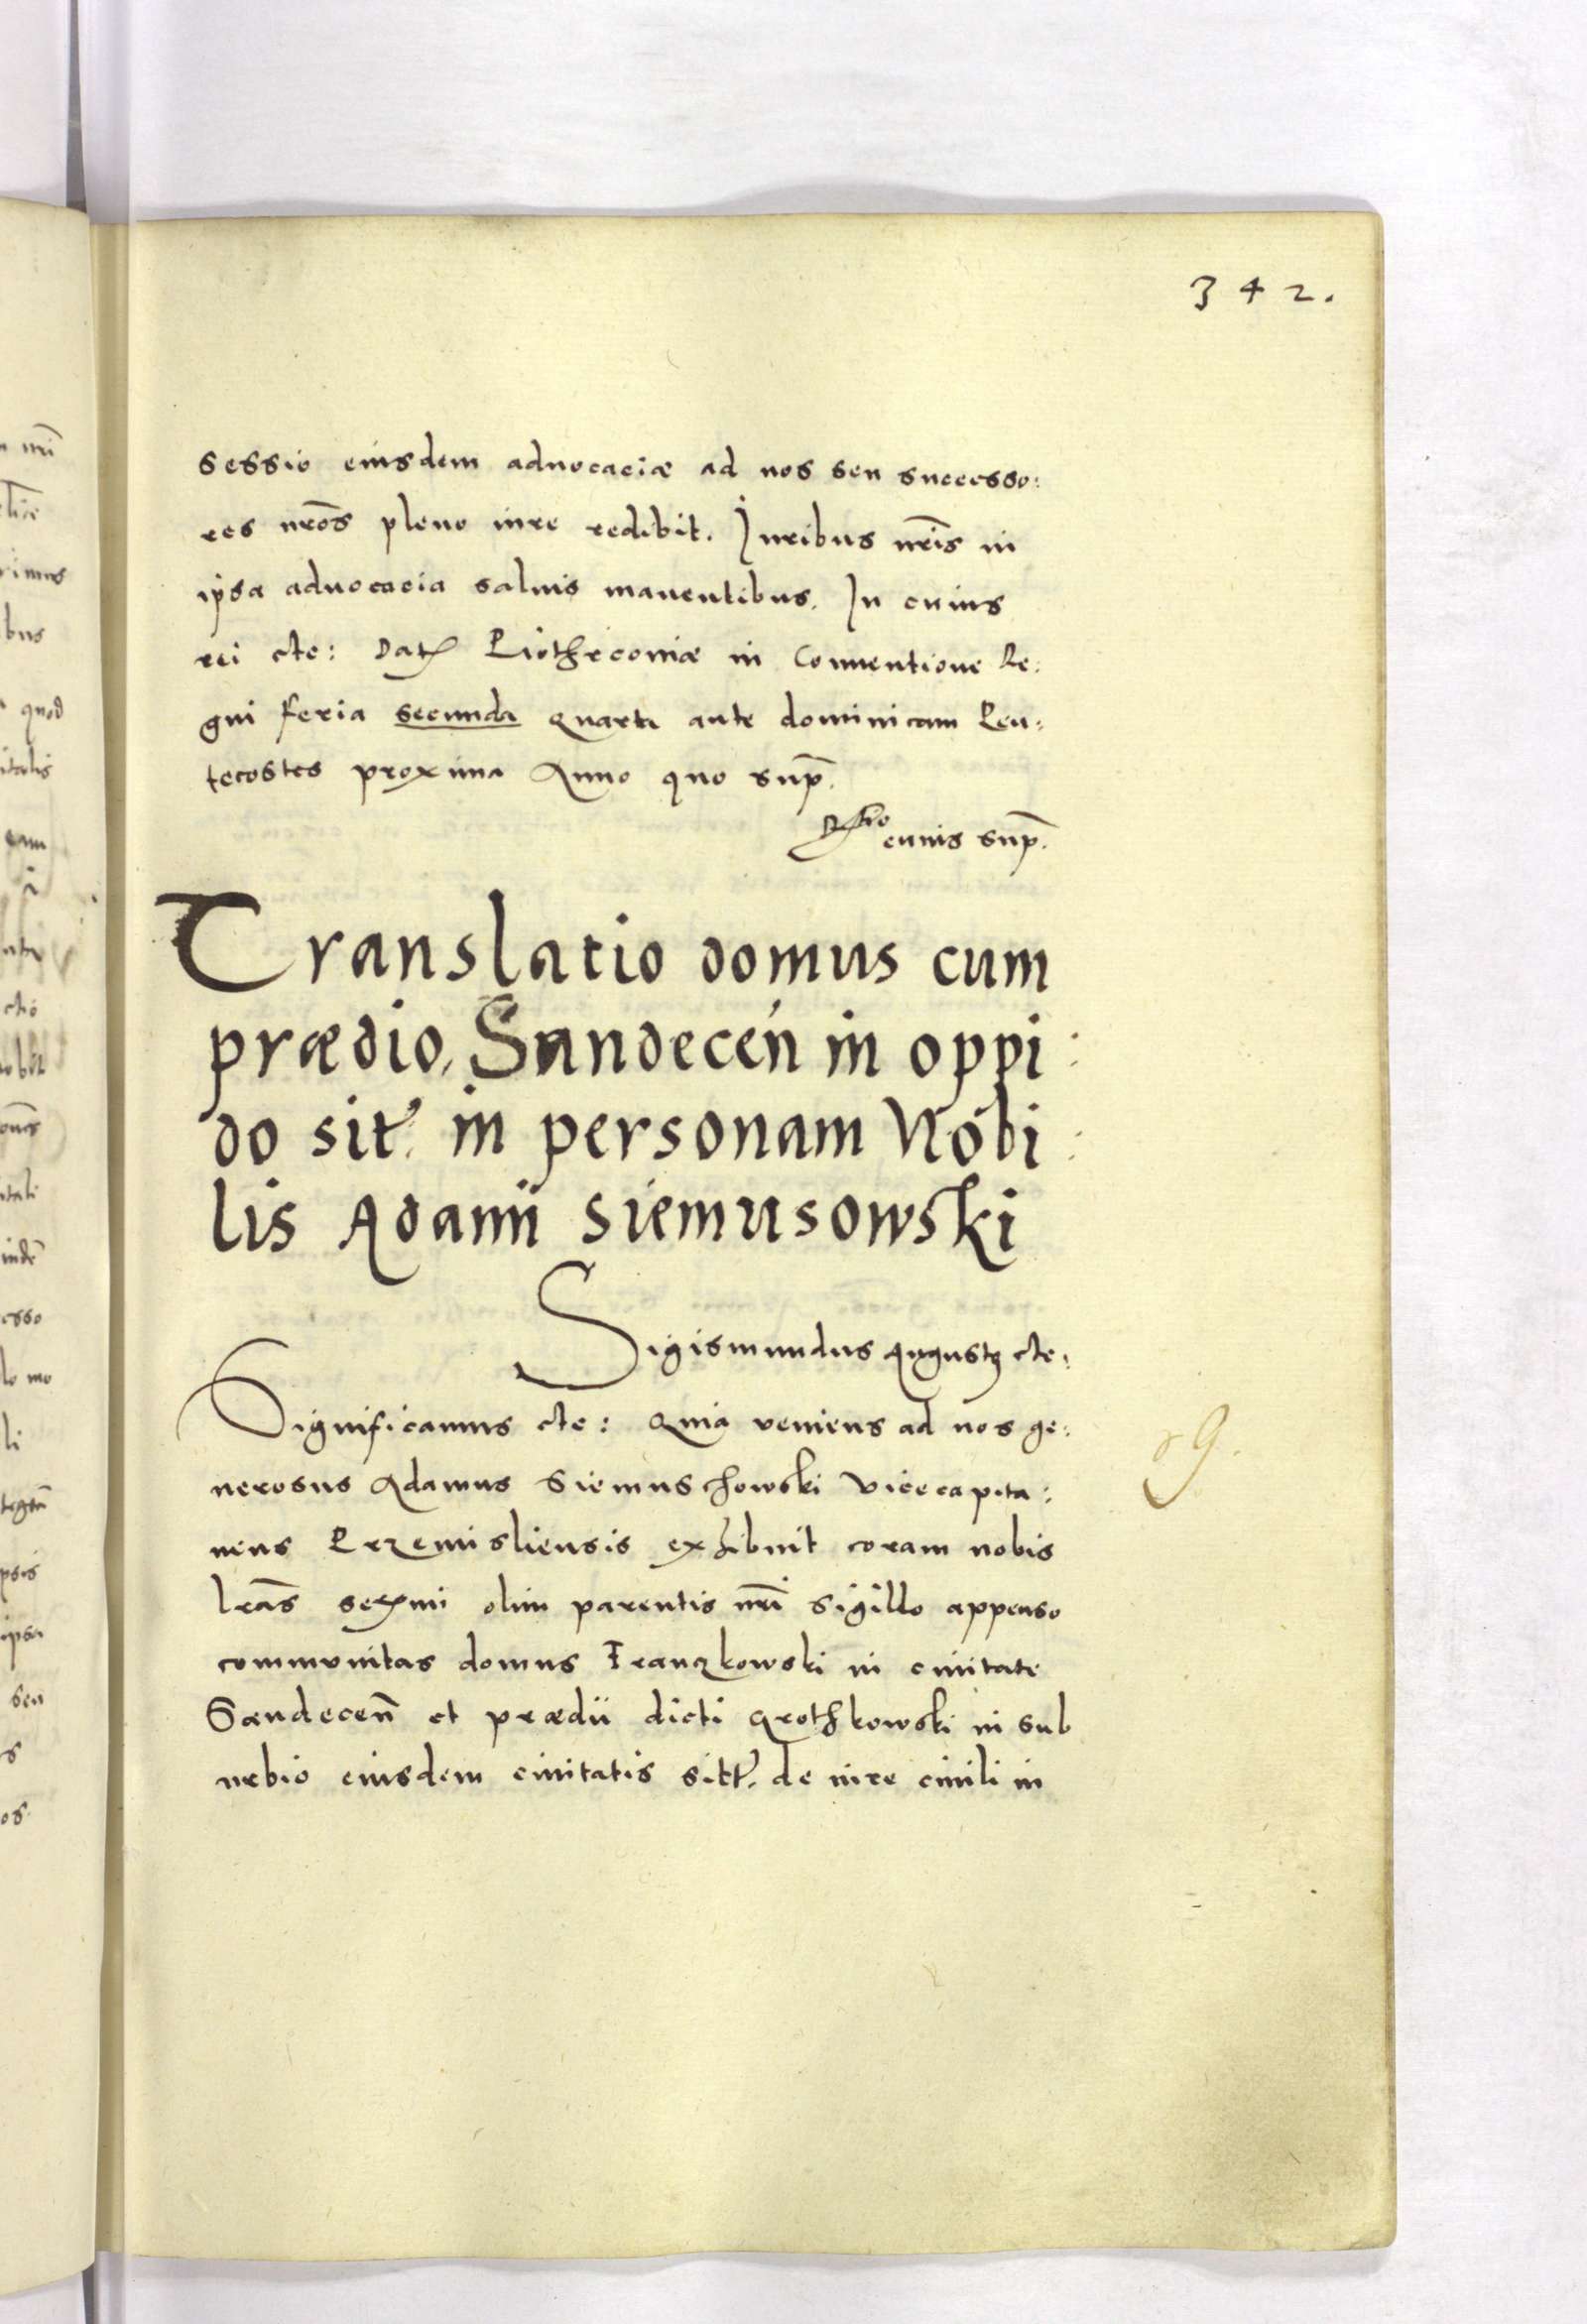 342.
sessio eiusdem aduocaciæ ad nos seu successo:
res nr̃os pleno iure redibit. Iuribus nr̃is in
ipsa aduocacia saluis manentibus. In cuius
rei etc: Dat Piothrcouiæ in Conuentione Re:
gni feria secunda quarta ante dominicam Pen:
tecostes proxima Anno quo sup̃.
cuius sup̃.
Translatio domus cum
prædio, Sandecen̄ in oppi:
do sit. in personam Nobi:
lis Adami Siemusowski
Sigismundus Augustꝫ etc:
Significamus etc: Quia veniens ad nos ge:
nerosus Adamus Siemuschowski Vicecapita:
neus Przemisliensis exhibuit coram nobis
lr̃as serx̃mi olim parentis nr̃i sigillo appenso
communitas domus Franczkowski in ciuitate
Sandecen̄ et prædii dicti Grothkowski in sub
urbio eiusdem ciuitatis sitt. de iure ciuili in